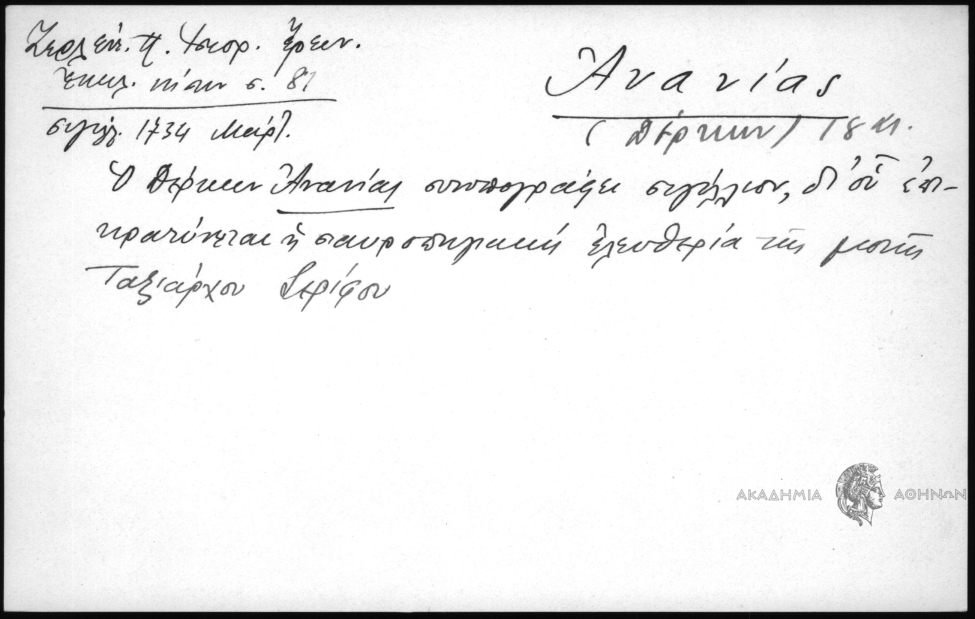 Ζερλέντ. Π. Ἱστορ. Ἔρευν.
Ἐκκλ. νήσων σ. 81
σιγίλ. 1734 Μάρτ.
Ἀνανίας
(Δέρκων) 18 αι.
Ὁ Δέρκων Ἀνανίας συνυπογράφει σιγίλλιον, δι' οὗ ἐπι-
κρατύνεται ἡ σταυροπηγιακή ἐλευθερία τῆς μονῆς
Ταξιάρχου Σερίφου
ΑΚΑΔΗΜΙΑ ΑΘΗΝΩΝ